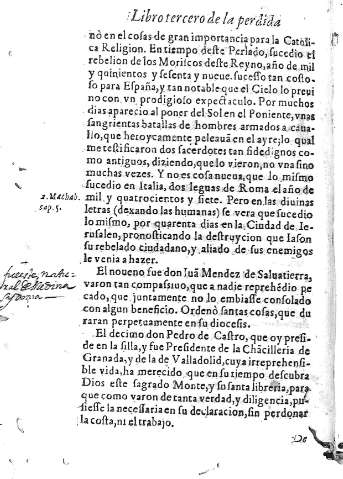 Libro tercero de la perdida
nò en el cosas de gran importancia para la Catoli-
ca Religion. En tiempo deste Perlado, sucedio el
rebelion de los Moriscos deste Reyno, año de mil
y quinientos y sesenta y nueue. sucesso tan costo-
so para España, y tan notable que el Cielo lo preui
no con vn prodigioso expectaculo. Por muchos
dias aparecio al poner del Sol en el Poniente, vnas
sangrientas batallas de hombres armados a caua-
llo, que heroycamente peleauã en el ayre; lo qual
me testificaron dos sacerdotes tan fidedignos co-
mo antiguos, diziendo, que lo vieron, no vna sino
muchas vezes. Y no es cosa nueua, que lo mismo
sucedio en Italia, dos leguas de Roma el año de
2. Machab. mil y quatrocientos y siete. Pero en las diuinas
cap. 5. letras (dexando las humanas) se vera que sucedio
lo mismo, por quarenta dias en la Ciudad de Ie-
rusalen, pronosticando la destruycion que Iason
su rebelado ciudadano, y aliado de sus enemigos
le venia a hazer.
El noueno fue don Iuã Mendez de Saluatierra,
varon tan compassiuo, que a nadie reprehẽdio pe
cado, que juntamente no lo embiasse consolado
con algun beneficio. Ordenò santas cosas, que du
raran perpetuamente en su diocesis.
El decimo don Pedro de Castro, que oy presi-
de en la silla, y fue Presidente de la Chãcilleria de
Granada, y de la de Valladolid, cuya irreprehensi-
ble vida, ha merecido, que en su tiempo descubra
Dios este sagrado Monte, y su santa libreria, para
que como varon de tanta verdad, y diligencia, pu-
siesse la necessaria en su declaracion, sin perdonar
la costa, ni el trabajo.
De